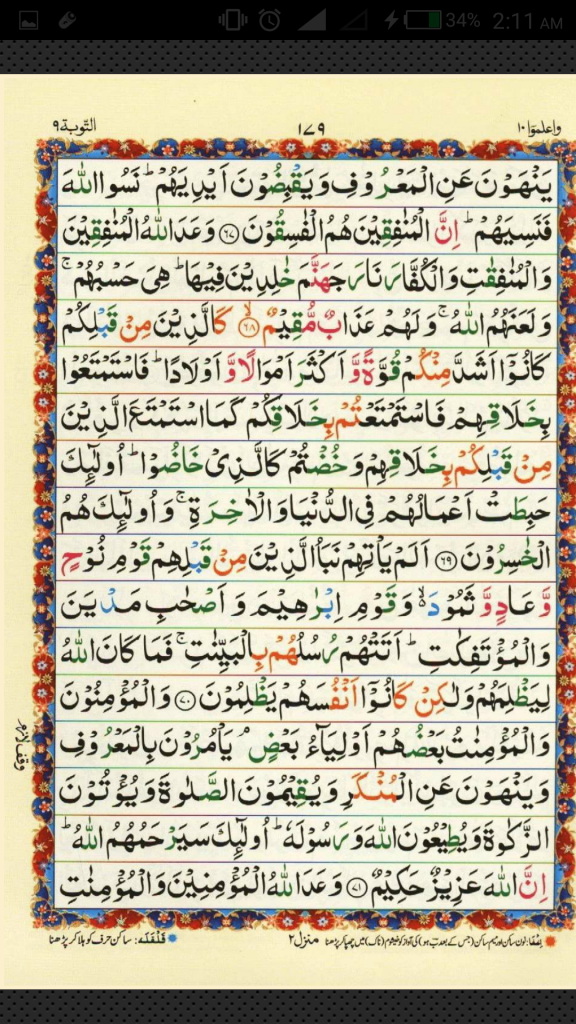 34% 2:11 AM
واعلموا ١٠ ١٧٩ التوبة ٩
يَنْهَوْنَ عَنِ الْمَعْرُوْفِ وَيَقْبِضُوْنَ اَيْدِيَهُمْ ؕ نَسُوا اللّٰهَ
فَنَسِيَهُمْ ؕ اِنَّ الْمُنٰفِقِيْنَ هُمُ الْفٰسِقُوْنَ ﴿٦٧﴾ وَعَدَ اللّٰهُ الْمُنٰفِقِيْنَ
وَالْمُنٰفِقٰتِ وَالْكُفَّارَ نَارَ جَهَنَّمَ خٰلِدِيْنَ فِيْهَا ؕ هِيَ حَسْبُهُمْ ۚ
وَلَعَنَهُمُ اللّٰهُ ۚ وَلَهُمْ عَذَابٌ مُّقِيْمٌ ﴿٦٨﴾ كَالَّذِيْنَ مِنْ قَبْلِكُمْ
كَانُوْۤا اَشَدَّ مِنْكُمْ قُوَّةً وَّ اَكْثَرَ اَمْوَالًا وَّ اَوْلَادًا ؕ فَاسْتَمْتَعُوْا
بِخَلَاقِهِمْ فَاسْتَمْتَعْتُمْ بِخَلَاقِكُمْ كَمَا اسْتَمْتَعَ الَّذِيْنَ
مِنْ قَبْلِكُمْ بِخَلَاقِهِمْ وَخُضْتُمْ كَالَّذِيْ خَاضُوْا ؕ اُولٰٓئِكَ
حَبِطَتْ اَعْمَالُهُمْ فِي الدُّنْيَا وَالْاٰخِرَةِ ۚ وَاُولٰٓئِكَ هُمُ
الْخٰسِرُوْنَ ﴿٦٩﴾ اَلَمْ يَاْتِهِمْ نَبَاُ الَّذِيْنَ مِنْ قَبْلِهِمْ قَوْمِ نُوْحٍ
وَّ عَادٍ وَّ ثَمُوْدَ ۙ وَقَوْمِ اِبْرٰهِيْمَ وَ اَصْحٰبِ مَدْيَنَ
وَالْمُؤْتَفِكٰتِ ؕ اَتَتْهُمْ رُسُلُهُمْ بِالْبَيِّنٰتِ ۚ فَمَا كَانَ اللّٰهُ
لِيَظْلِمَهُمْ وَلٰكِنْ كَانُوْۤا اَنْفُسَهُمْ يَظْلِمُوْنَ ﴿٧٠﴾ وَالْمُؤْمِنُوْنَ
وَالْمُؤْمِنٰتُ بَعْضُهُمْ اَوْلِيَآءُ بَعْضٍ ۘ يَاْمُرُوْنَ بِالْمَعْرُوْفِ
وقف لازم
وَيَنْهَوْنَ عَنِ الْمُنْكَرِ وَيُقِيْمُوْنَ الصَّلٰوةَ وَيُؤْتُوْنَ
الزَّكٰوةَ وَيُطِيْعُوْنَ اللّٰهَ وَرَسُوْلَهٗ ؕ اُولٰٓئِكَ سَيَرْحَمُهُمُ اللّٰهُ ؕ
اِنَّ اللّٰهَ عَزِيْزٌ حَكِيْمٌ ﴿٧١﴾ وَعَدَ اللّٰهُ الْمُؤْمِنِيْنَ وَالْمُؤْمِنٰتِ
اِخفَا: نون ساکن اور میم ساکن (جس کے بعد ب ہو) کی آواز کو خیشوم (ناک) میں چھپا کر پڑھنا منزل ٢ قَلْقَلَه: ساکن حرف کو ہلا کر پڑھنا